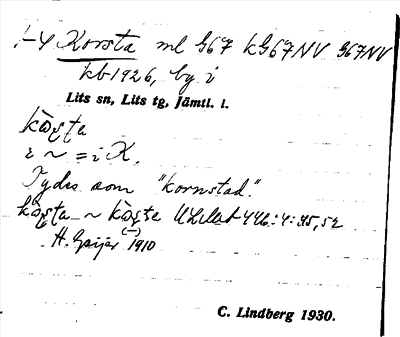 1-4 Korsta ml G67 kG67NV G67NV
kb 1926, by i
Lits sn, Lits tg, Jämtl. l.
kòʂta
i ~ = i K.
Tydes som "kornstad."
kòʂta ~ kòʂta ULMA 446:4: 45, 52
H. Geijer 1910
C. Lindberg 1930.